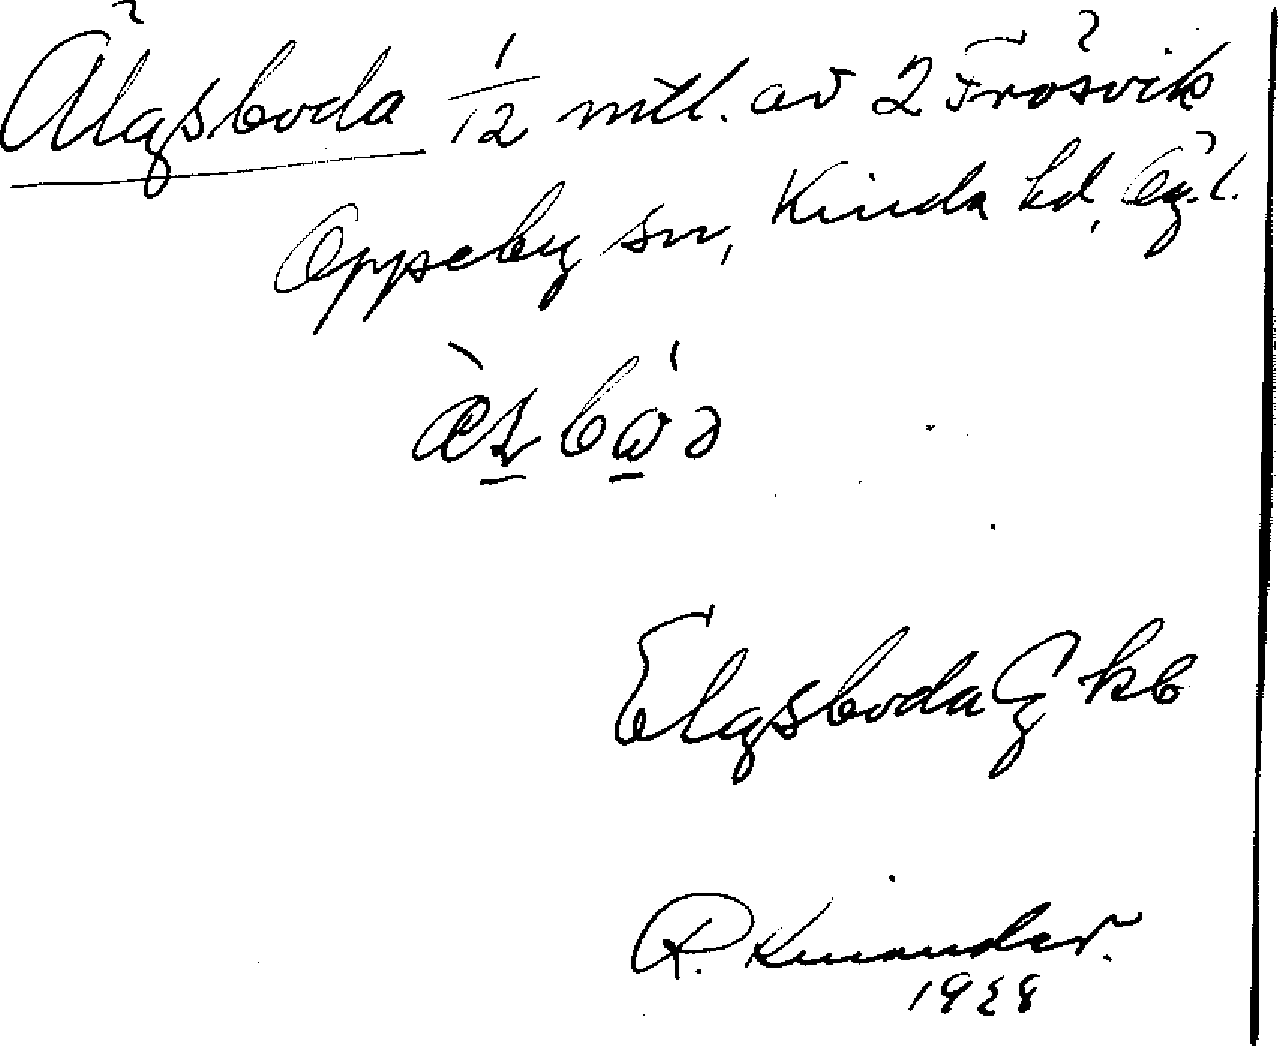 Älgsboda 1/12 mtl. av 2 Frösvik
Oppeby sn, Kinda hd, Ög.l.
Elgsboda Gkb
R. Kinander.
1928